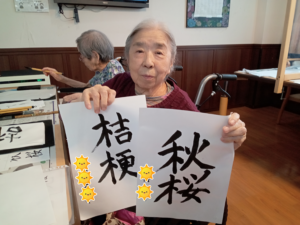 桔梗
秋桜